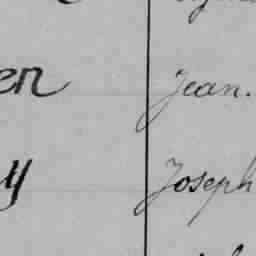 en Jean.
y Joseph